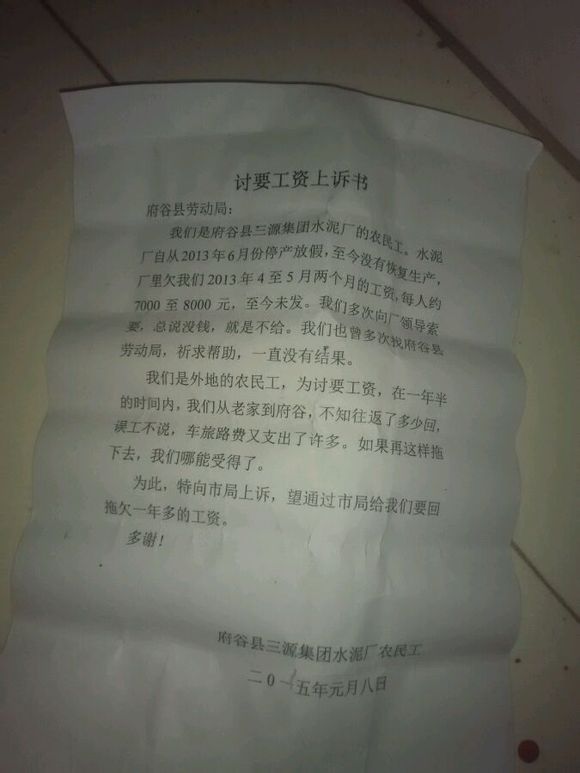 讨要工资上诉书
府谷县劳动局：
我们是府谷县三源集团水泥厂的农民工。水泥
厂自从2013年6月份停产放假，至今没有恢复生产，
厂里欠我们2013年4至5月两个月的工资，每人约
7000至8000元，至今未发。我们多次向厂领导索
要，总说没钱，就是不给。我们也曾多次找府谷县
劳动局，祈求帮助，一直没有结果。
我们是外地的农民工，为讨要工资，在一年半
的时间内，我们从老家到府谷，不知往返了多少回，
误工不说，车旅路费又支出了许多。如果再这样拖
下去，我们哪能受得了。
为此，特向市局上诉，望通过市局给我们要回
拖欠一年多的工资。
多谢！
府谷县三源集团水泥厂农民工
二0一五年元月八日